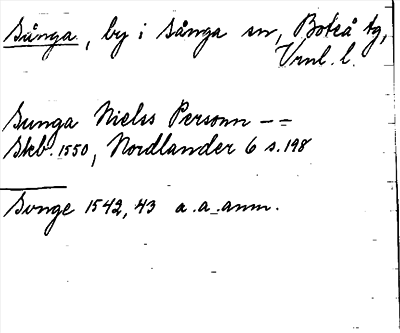 Sånga, by i Sånga sn, Boteå tg,
Vrnl. l.
Sunga Nielss Personn - =
Skb. 1550, Nordlander 6 s. 198
Svnge 1542, 43 a. a. anm.